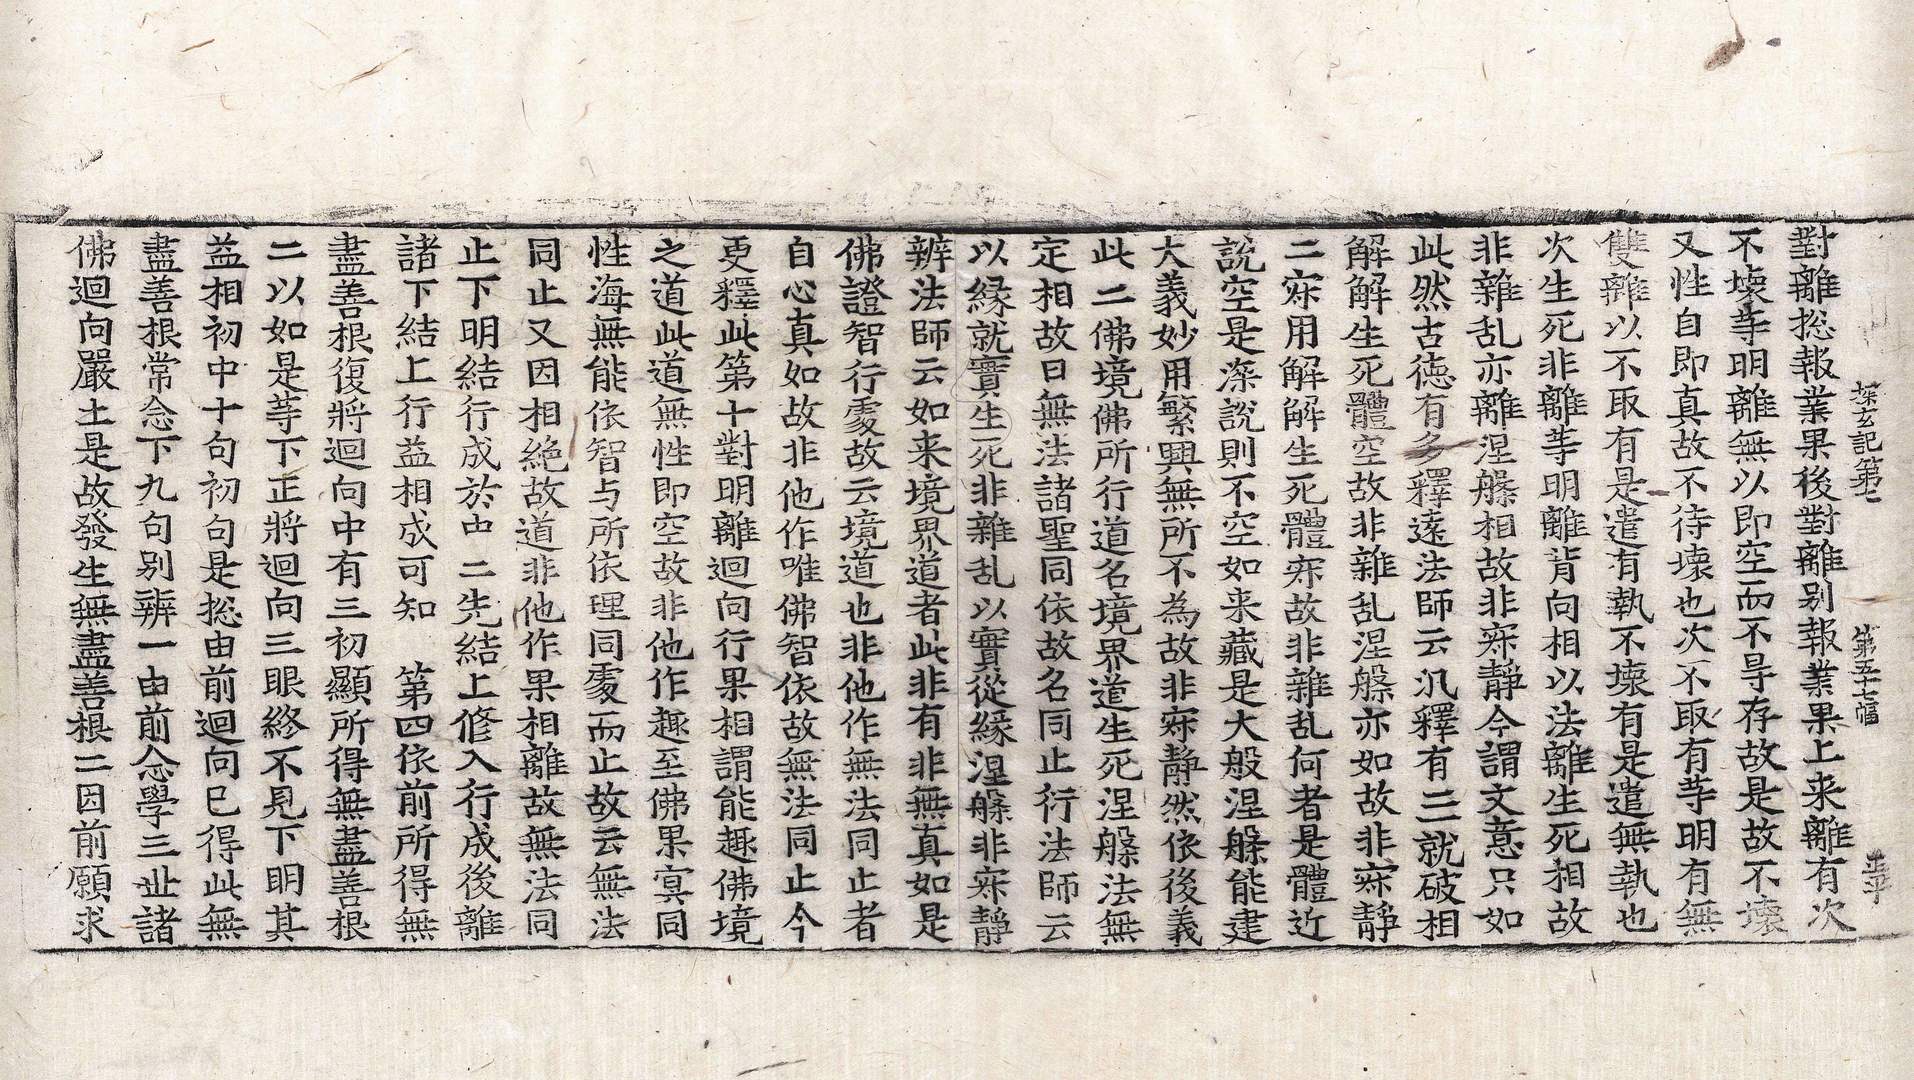 探玄記第七　第五十七幅　王平
對離捴報業果後對離别報業果上来離有次
不壊䓁明離無以即空而不㝵存故是故不壊
又性自即真故不待壊也次不取有䓁明有無
雙離以不取有是遣有執不壊有是遣無執也
次生死非離䓁明離背向相以法離生死相故
非雜乱亦離涅槃相故非㝛靜今謂文意只如
此然古徳有多釋遠法師云汎釋有三就破相
解解生死體空故非雜乱涅槃亦如故非㝛靜
二㝛用解解生死體㝛故非雜乱何者是體近
說空是深說則不空如来藏是大般涅槃能建
大義妙用繁興無所不為故非㝛靜然依後義
此二佛境佛所行道名境界道生死涅槃法無
定相故曰無法諸聖同依故名同止衍法師云
以緣就實生死非雜乱以實從緣涅槃非㝛靜
辨法師云如来境界道者此非有非無真如是
佛證智行處故云境道也非他作無法同止者
自心真如故非他作唯佛智依故無法同止今
更釋此第十對明離迴向行果相謂能趣佛境
之道此道無性即空故非他作趣至佛果㝠同
性海無能依智与所依理同處而止故云無法
同止又因相絶故道非他作果相離故無法同
止下明結行成於中　二先結上修入行成後離
諸下結上行益相成可知　第四依前所得無
盡善根復將迴向中有三初顯所得無盡善根
二以如是䓁下正將迴向三眼終不見下明其
益相初中十句初句是捴由前迴向已得此無
盡善根常念下九句别辨一由前念學三世諸
佛迴向嚴土是故發生無盡善根二因前願求